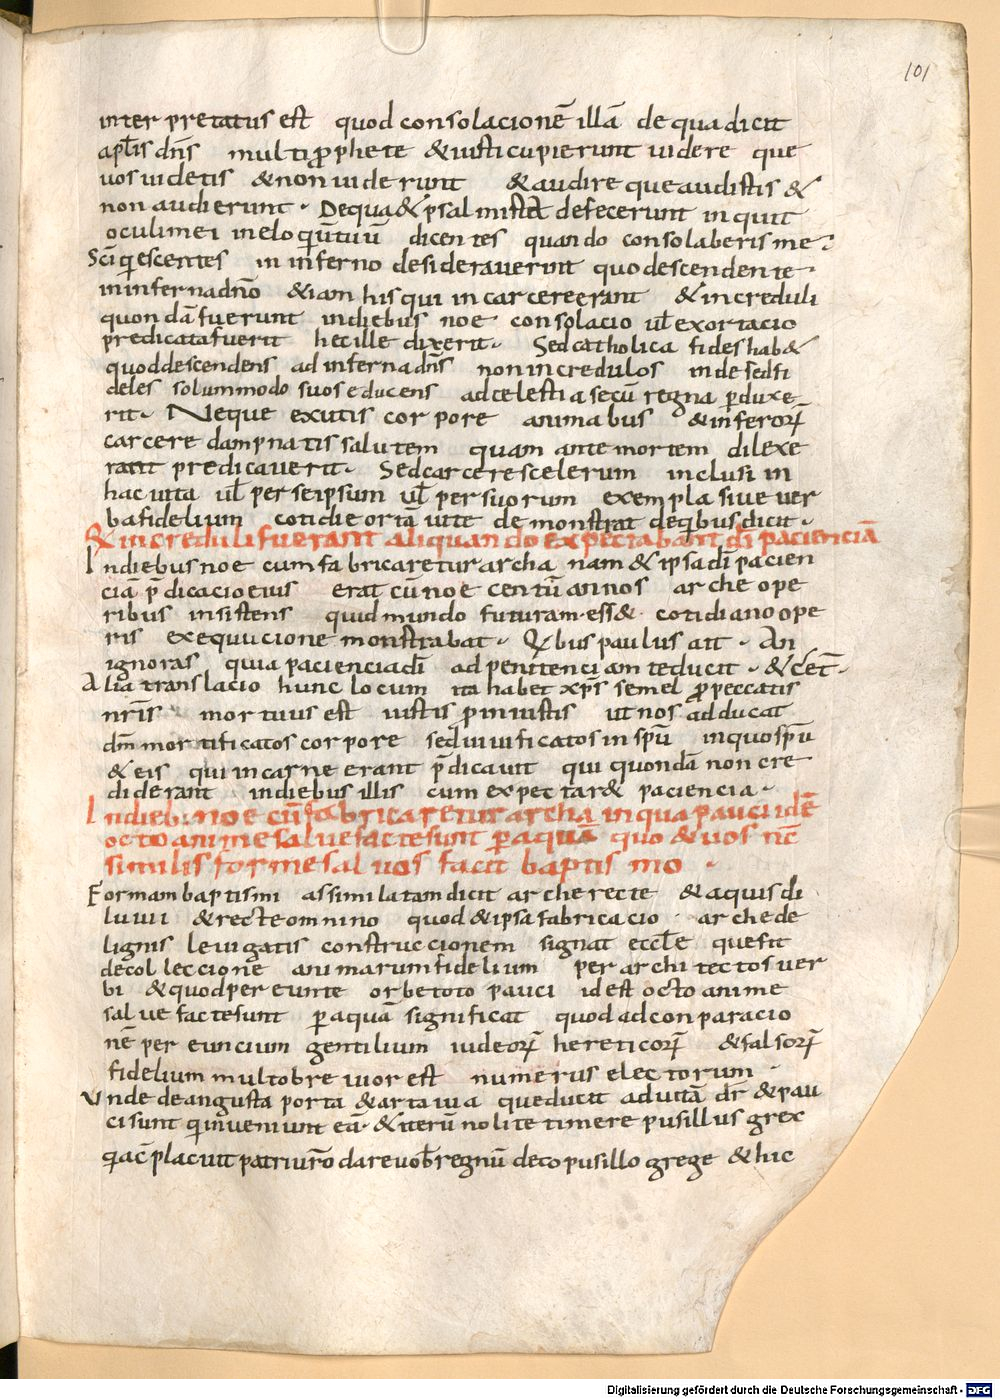 101
interpretatus est quod consolacionē illā de qua dicit
apłis dn̄s multi ꝓphete & iusti cupierunt uidere que
uos uidetis & non uiderunt & audire que audistis &
non audierunt. De qua & psalmista defecerunt inquit
oculi mei in eloquiū tuū dicentes quando consolaberis me?
Sc̄i quiescentes in inferno desiderauerunt quo descendente
in inferna dn̄o & iam his qui in carcere erant & increduli
quondā fuerunt in diebus noe consolacio ul̄ exortacio
predicata fuerit hec ille dixerit. Sed catholica fides hab&
quod descendens ad inferna dn̄s non incredulos inde sed fi
deles solummodo suos educens ad celestia secū regna ꝑduxe
rit. Neque exutis corpore animabus & inferoꝝ
carcere dampnatis salutem quam ante mortem dilexe
rant predicauerit. Sed carcere scelerum inclusi in
hac uita ul̄ per se ipsum ul̄ per suorum exempla siue uer
ba fidelium cotidie ortā uite demonstrat de qibus dicit.
& increduli fuerant aliquando expectabant dī pacienciā
In diebus noe cum fabricaretur archa nam & ipsa dī pacien
ciā p̄dicacio eius erat cū noe centū annos arche ope
ribus insistens quid mundo futuram ess& cotidiano ope
ris exequucione monstrabat. Qibus paulus ait. An
ignoras quia paciencia dī ad penitenciam te ducit. & cet̄.
Alia translacio hunc locum ita habet xp̄s semel ꝓ peccatis
nr̄is mortuus est iustis ꝓ iniustis ut nos adducat
dm̄ mortificatos corpore sed uiuificatos in spū in quo spū
& eis qui in carne erant p̄dicauit qui quondā non cre
diderant in diebus illis cum expectar& paciencia.
In dieb: noe cū fabricaretur archa in qua pauci idē
octo anime salue facte sunt ꝑ aquā quo & uos nc̄
similis forme saluos facit baptismo.
Formam baptismi assimilatam dicit arche recte & aquis di
luuii & recte omnino quod & ipsa fabricacio arche de
lignis leuigatis construccionem signat eccłe que fit
de colleccione animarum fidelium per architectos uer
bi & quod pereunte orbe toto pauci id est octo anime
salue facte sunt ꝑ aquā significat quod ad conparacio
nē pereuncium gentilium iudeoꝝ hereticoꝝ & falsoꝝ
fidelium multo breuior est numerus electorum.
Unde de angusta porta & arta uia que ducit ad uitā dr̄ & pau
ci sunt qi inueniunt eā. & iterū nolite timere pusillus grex
qia cplacuit patri uro dare uob̄ regnū de co pusillo grege & hic
Digitalisierung gefördert durch die Deutsche Forschungsgemeinschaft - DFG